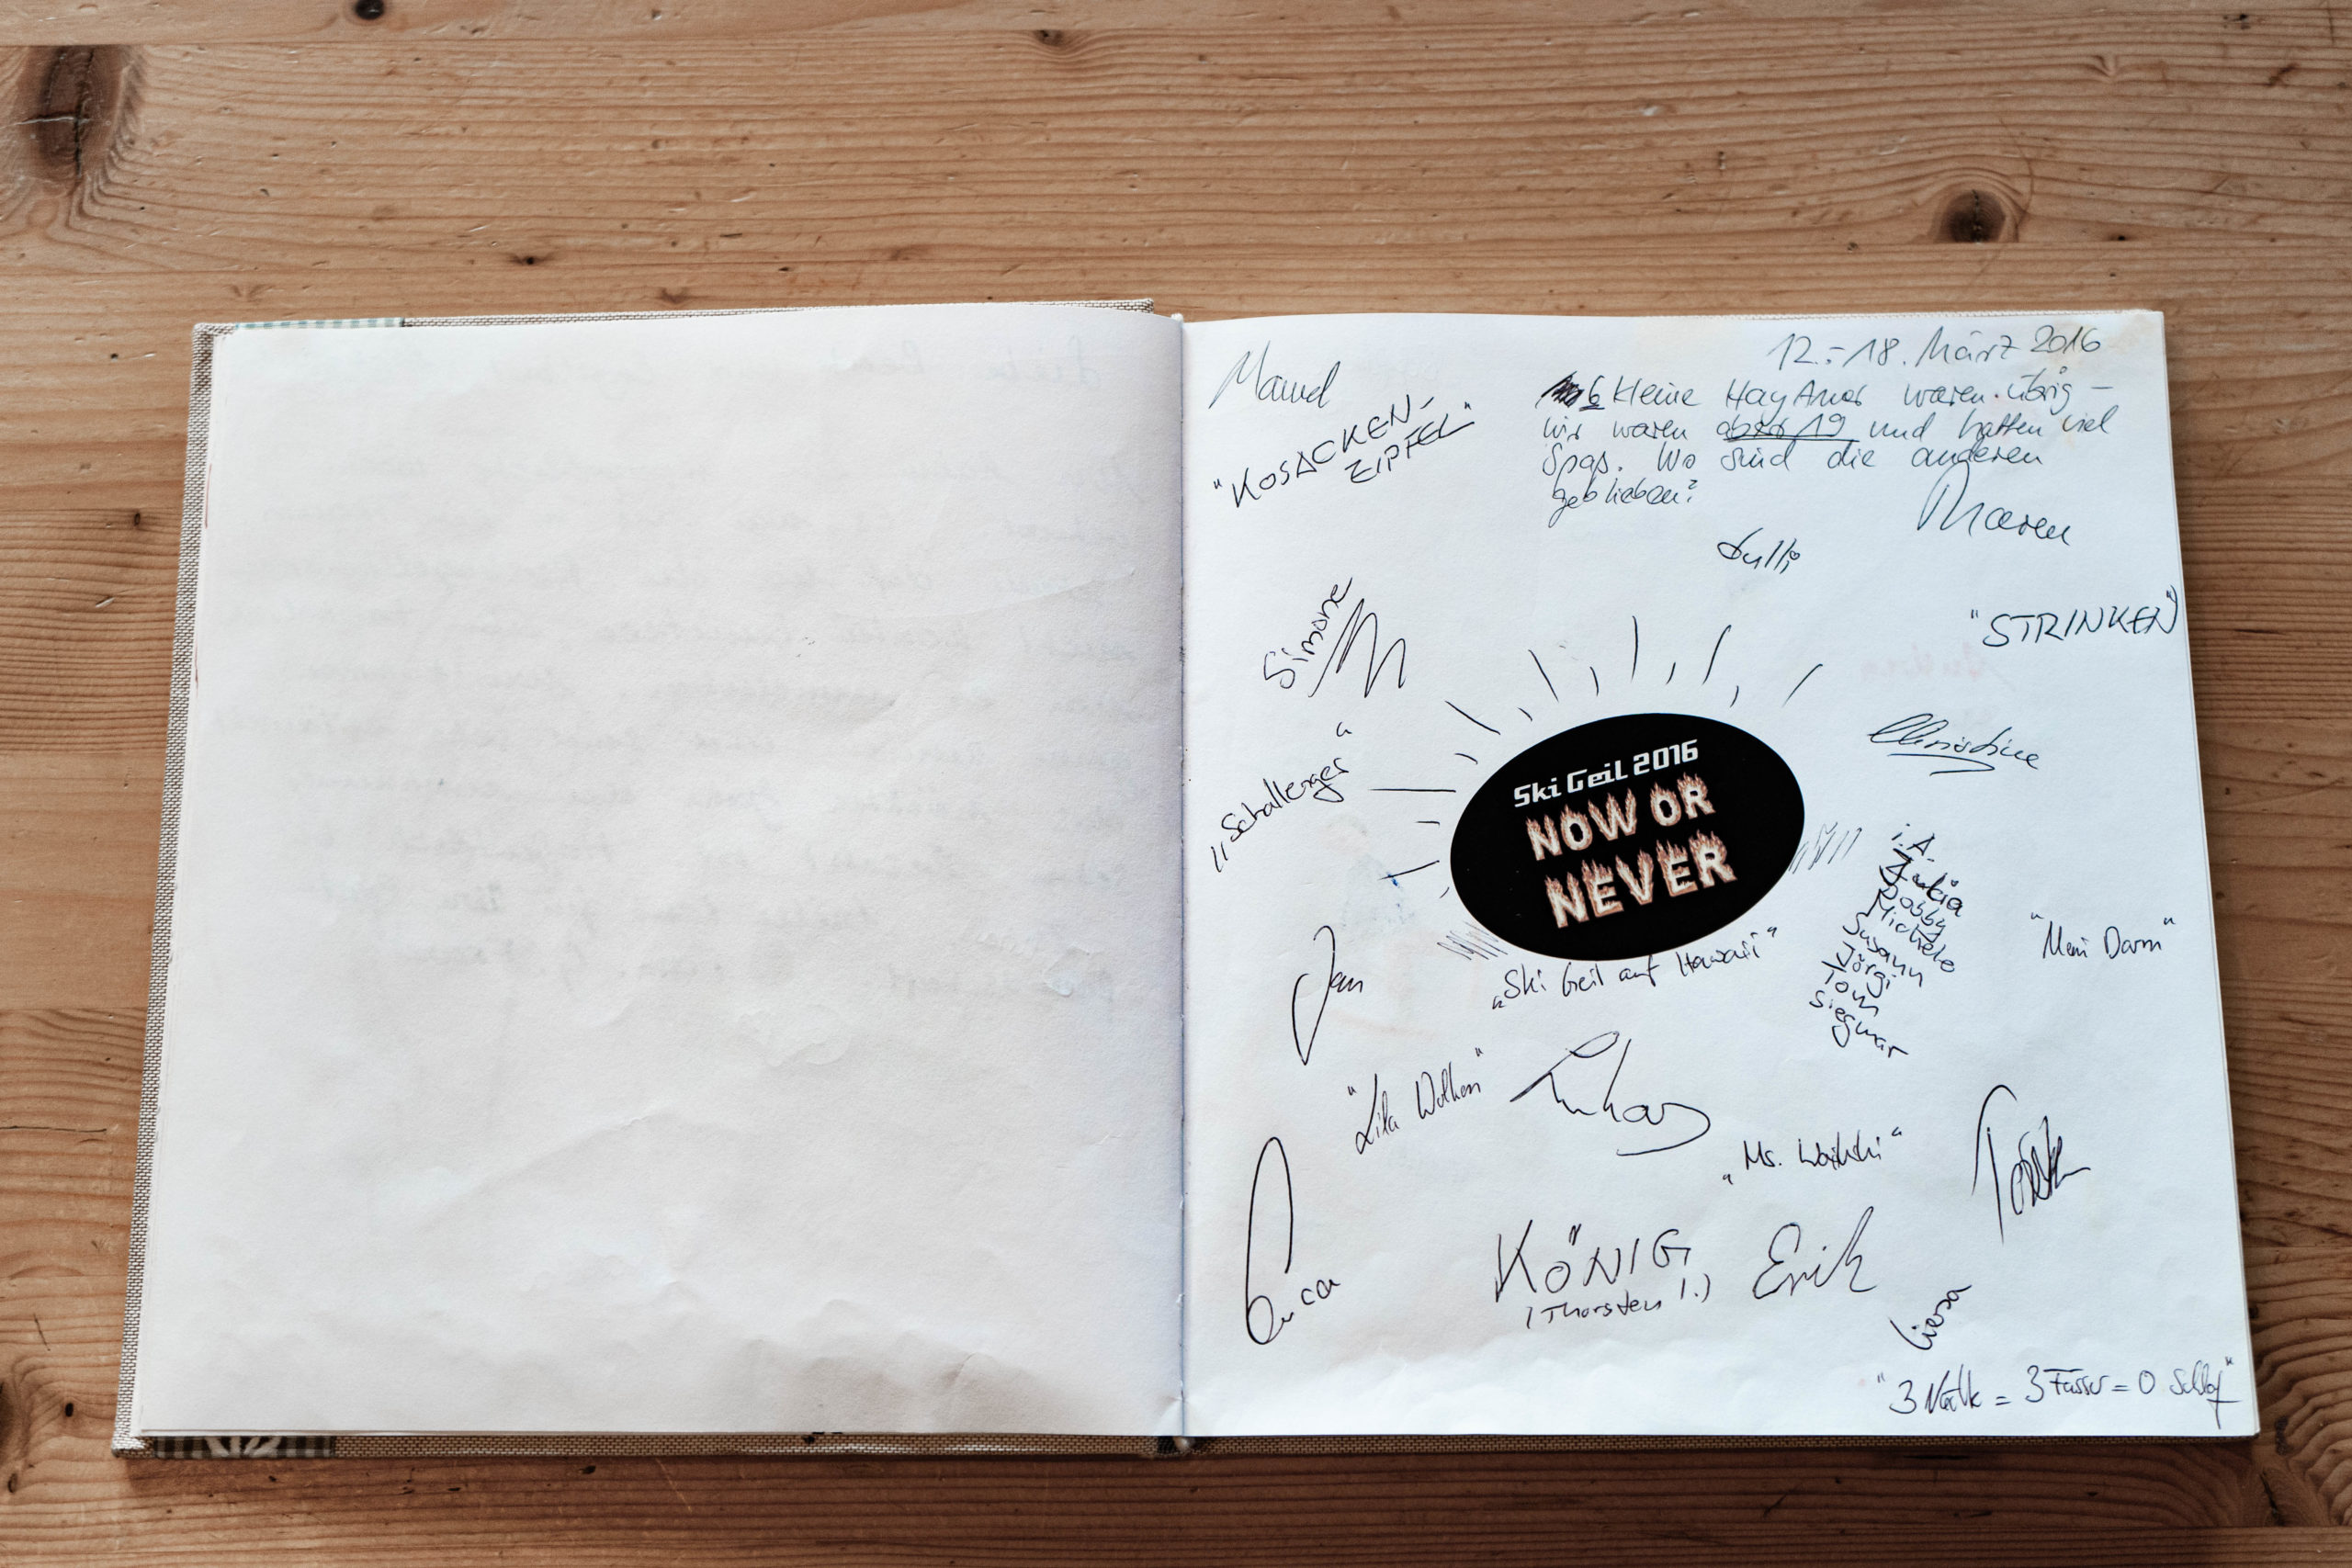 12.-18. März 2016
6 kleine HayAner waren übrig -
wir waren aber 19 und hatten viel
Spaß. Wo sind die anderen
geblieben?
Maren
"KOSACKEN-
ZIPFEL"
"STRINKEN"
Simone
"Schallerger"
Christine
Ski Geil 2016
NOW OR
NEVER
"Ski Geil auf Hawaii"
i.A.
Bobby
Michele
Susann
Jörgi
Tom
Siegmar
"Mein Darm"
Jan
"Lila Wolken"
Lukas
"Ms. Waikiki"
Luca
KÖNIG
(Thorsten I.)
Erik
"3 Nächte = 3 Fässer = 0 Schlaf"